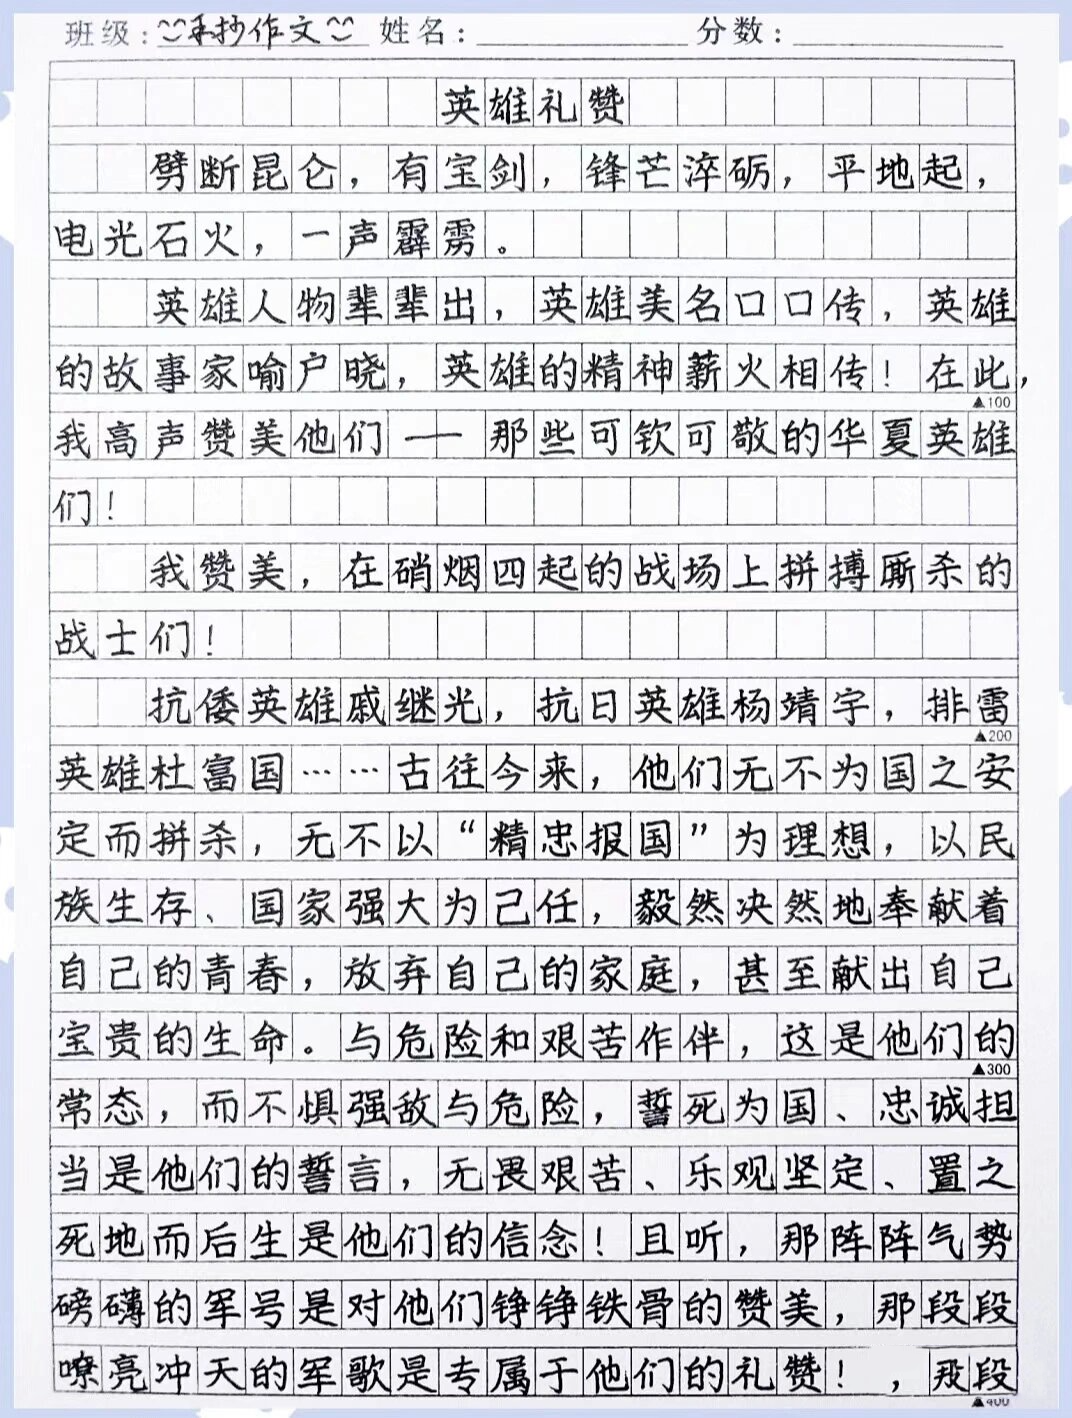 班级：手抄作文 姓名： 分数：
英雄礼赞
劈断昆仑，有宝剑，锋芒淬砺，平地起，
电光石火，一声霹雳。
英雄人物辈辈出，英雄美名口口传，英雄
的故事家喻户晓，英雄的精神薪火相传！在此，
▲100
我高声赞美他们——那些可钦可敬的华夏英雄
们！
我赞美，在硝烟四起的战场上拼搏厮杀的
战士们！
抗倭英雄戚继光，抗日英雄杨靖宇，排雷
▲200
英雄杜富国……古往今来，他们无不为国之安
定而拼杀，无不以“精忠报国”为理想，以民
族生存、国家强大为己任，毅然决然地奉献着
自己的青春，放弃自己的家庭，甚至献出自己
宝贵的生命。与危险和艰苦作伴，这是他们的
▲300
常态，而不惧强敌与危险，誓死为国、忠诚担
当是他们的誓言，无畏艰苦、乐观坚定、置之
死地而后生是他们的信念！且听，那阵阵气势
磅礴的军号是对他们铮铮铁骨的赞美，那段段
嘹亮冲天的军歌是专属于他们的礼赞！，段
▲400